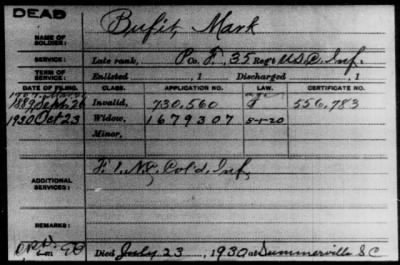 DEAD
NAME OF SOLDIER: Bufit, Mark
SERVICE: Late rank, P Co. F, 35 Reg't U.S.C. Inf.
TERM OF SERVICE: Enlisted , 1 Discharged , 1
DATE OF FILING. CLASS. APPLICATION NO. LAW. CERTIFICATE NO.
1889 Sept. 26 Invalid, 730,560 556,783
1930 Oct 23 Widow, 1679307 5-1-20
Minor,
ADDITIONAL SERVICES: F. 1. N.C. Col'd. Inf.
REMARKS:
Died July 23, 1930 at Summerville S C